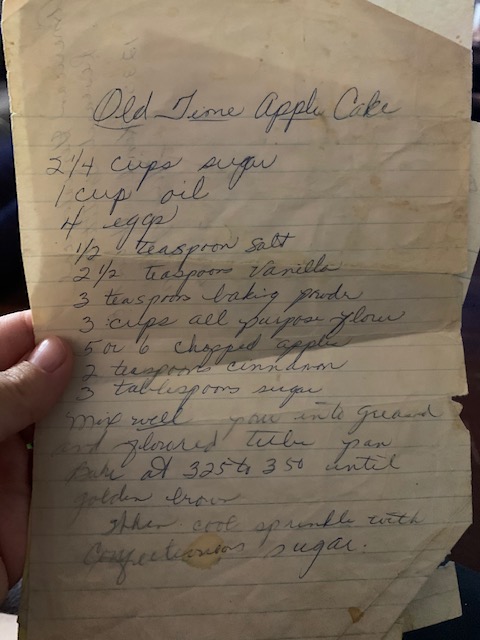 Old Time Apple Cake
2 1/4 cups sugar
1 cup oil
4 eggs
1/2 teaspoon salt
2 1/2 teaspoons Vanilla
3 teaspoons baking powder
3 cups all purpose flour
5 or 6 chopped apples
2 teaspoons cinnamon
3 tablespoons sugar
Mix well pour into greased
and floured tube pan
Bake at 325 to 350 until
golden brown
When cool sprinkle with
Confectioners sugar.